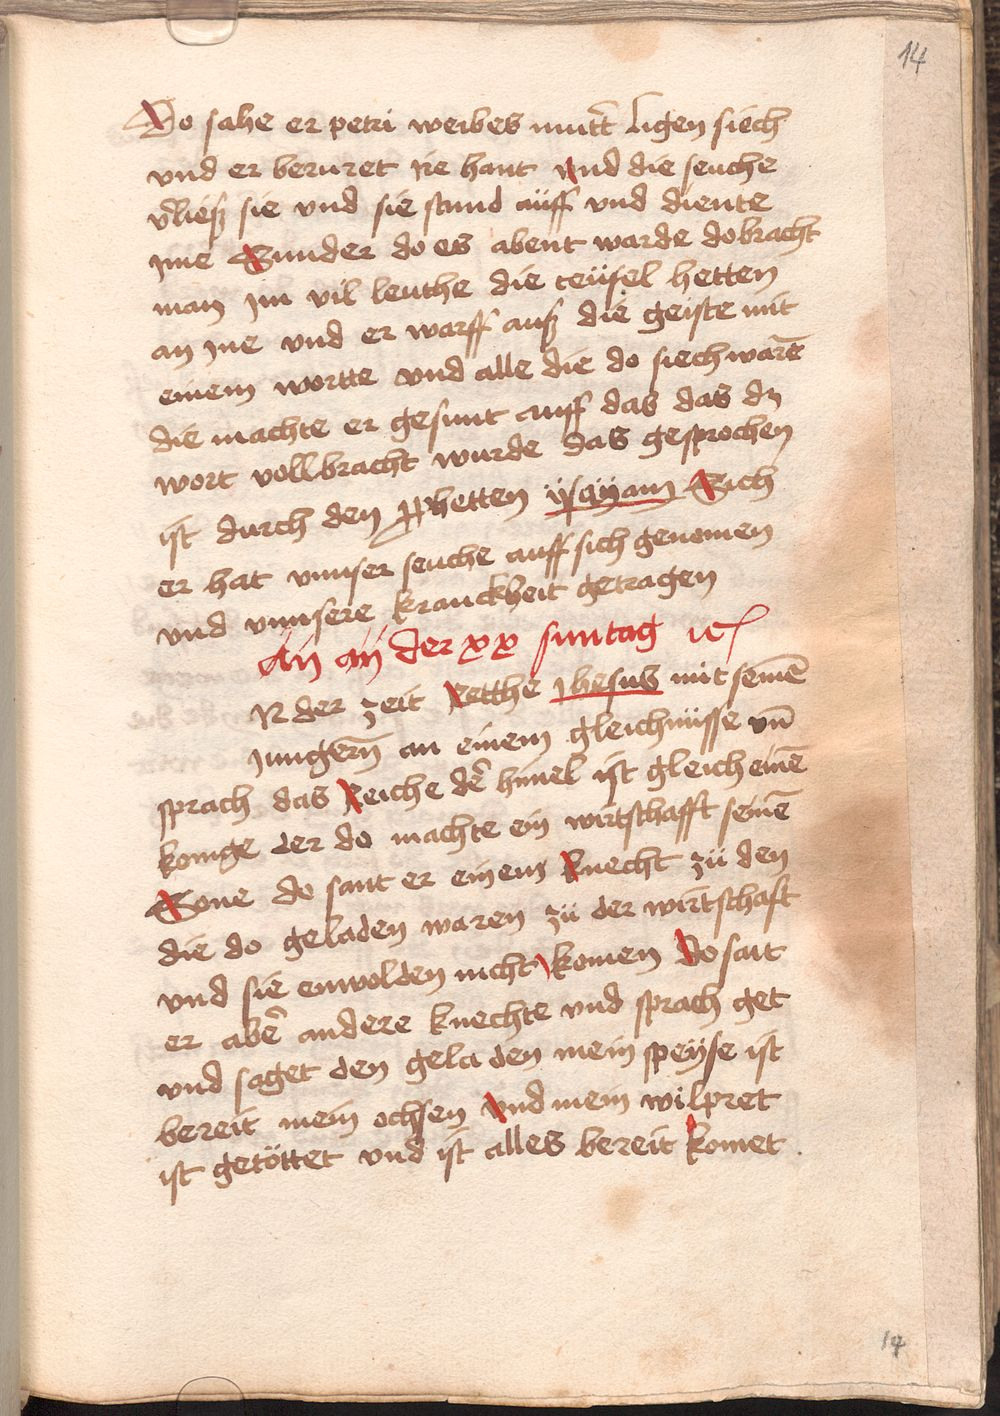 14
Do sahe er petri weibes mutt̄ ligen siech
vnd er beruret ire hant vnd die seuche
v̄ließ sie vnd sie stund aüff vnd diente
jme Sunder do es abent warde dobracht
man jm vil leuthe die teüfel hetten
an jne vnd er warff auß die geiste mit
einem wortte vnd alle die do siech warē
die machte er gesunt auff das das dz
wort vollbracht wurde das gesprochen
ist durch den ꝓphetten ysayam Sich
er hat vnnser seuche auff sich genomen
vnd vnnsere kranckheit getragen
An der xx suntag
N der zeit Retthe Jhesus mit seinē
jungern̄ an einem gleichnüsse vn̄
sprach das Reiche der̄ himel ist gleich einē
konige der do machte ein wirtschafft seinē
Sone do sant er einem knecht zü den
die do geladen waren zü der wirtschaft
vnd sie enwolden nicht komen Do sant
er aber̄ andere knechte vnd sprach get
vnd saget den gela den mein speyse ist
bereit mein ochsen vnd mein wilpret
ist getöttet vnd ist alles bereit komet .
14